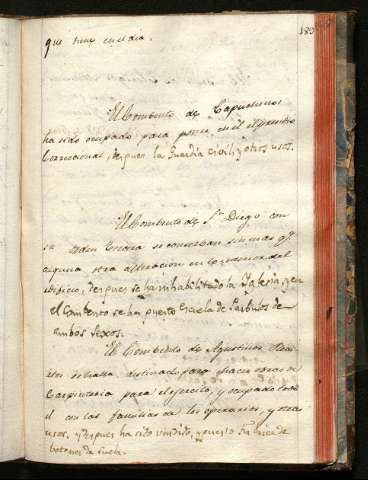 180
que tiene en el dia.
El Combento de Capuchinos
ha sido ocupado para poner en él el presidio
Correccional, despues la Guardia civil y otros usos.
El Combento de Sn. Diego con
su Orden Tercera se conservan sin mas qe.
alguna otra alteracion en lo interior del
edificio, despues se ha inhabilitado la Iglesia, y en
el Combento se ha puesto Escuela de Parbulos de
ambos sexos.
El Combento de Agustinos
se halla destinado para hacer obras de
Carpinteria para el ejercito, y ocupado todo
el con las familias de los operarios, y otros
usos, y despues ha sido vendido, y puesto fabrica de
botones de suela.